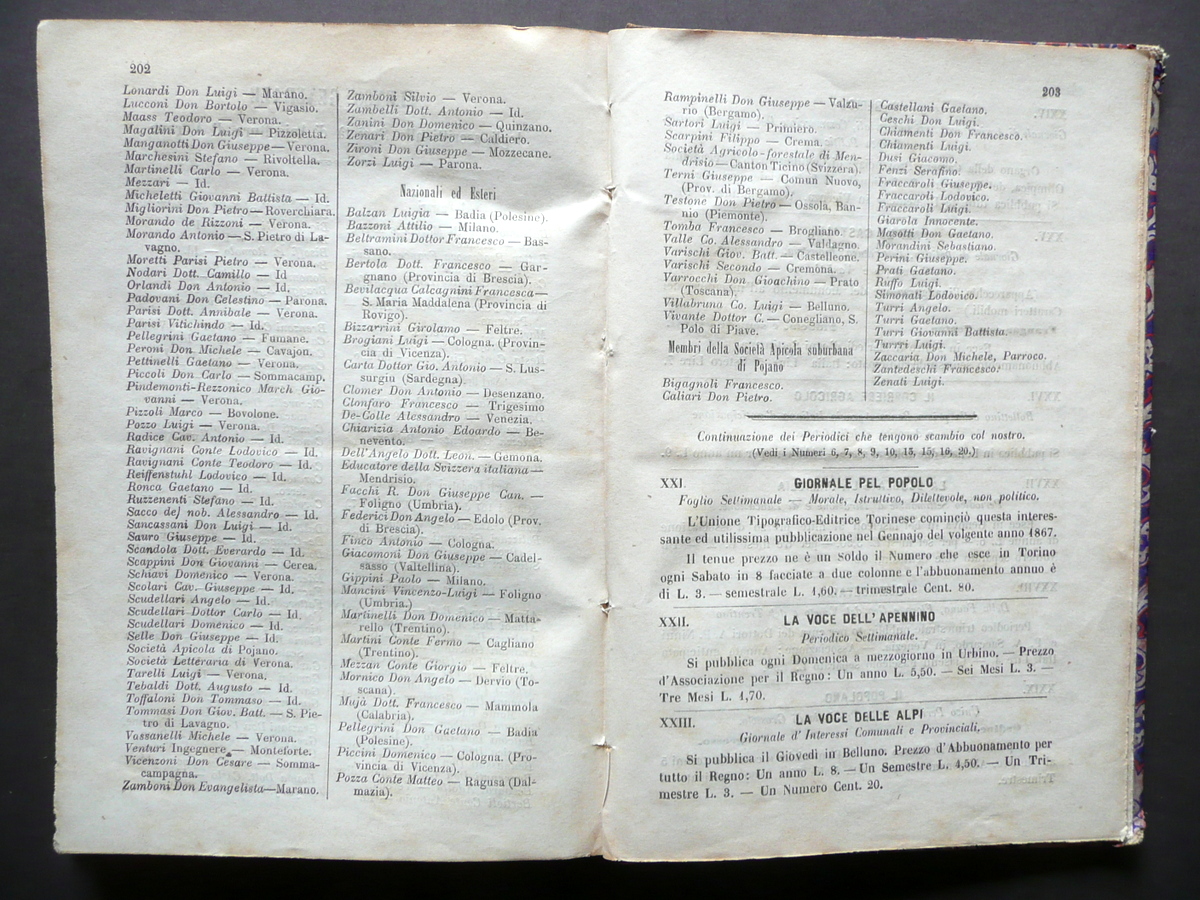 202
Lonardi Don Luigi — Marano.
Lucconi Don Bortolo — Vigasio.
Maass Teodoro — Verona.
Magalini Don Luigi — Pizzoletta.
Manganotti Don Giuseppe—Verona.
Marchesini Stefano — Rivoltella.
Martinelli Carlo — Verona.
Mezzari — Id.
Micheletti Giovanni Battista — Id.
Migliorini Don Pietro—Roverchiara.
Morando de Rizzoni — Verona.
Morando Antonio —S. Pietro di La-
vagno.
Moretti Parisi Pietro — Verona.
Nodari Dott. Camillo — Id
Orlandi Don Antonio — Id.
Padovani Don Celestino — Parona.
Parisi Dott. Annibale — Verona.
Parisi Vitichindo — Id.
Pellegrini Gaetano — Fumane.
Peroni Don Michele — Cavajon.
Pettinelli Gaetano — Verona.
Piccoli Don Carlo — Sommacamp.
Pindemonti-Rezzonico March Gio-
vanni — Verona.
Pizzoli Marco — Bovolone.
Pozzo Luigi — Verona.
Radice Cav. Antonio — Id.
Ravignani Conte Lodovico — Id.
Ravignani Conte Teodoro — Id.
Reiffenstuhl Lodovico — Id.
Ronca Gaetano — Id.
Ruzzenenti Stefano — Id.
Sacco de/ nob. Alessandro — Id.
Sancassani Don Luigi — Id.
Sauro Giuseppe — Id.
Scandola Dott. Everardo — Id.
Scappini Don Giovanni — Cerea.
Schiavi Domenico — Verona.
Scolari Cav. Giuseppe — Id.
Scudellari Angelo — Id.
Scudellari Dottor Carlo — Id.
Scudellari Domenico — Id.
Selle Don Giuseppe — Id.
Società Apicola di Pojano.
Società Letteraria di Verona.
Tarelli Luigi — Verona.
Tebaldi Dott. Augusto — Id.
Toffaloni Don Tommaso — Id.
Tommasi Don Giov. Batt. — S. Pie-
tro di Lavagno.
Vassanelli Michele — Verona.
Venturi Ingegnere — Monteforte.
Vicenzoni Don Cesare — Somma-
campagna.
Zamboni Don Evangelista—Marano.
Zamboni Silvio — Verona.
Zambelli Dott. Antonio — Id.
Zanini Don Domenico — Quinzano.
Zenari Don Pietro — Caldiero.
Zironi Don Giuseppe — Mozzecane.
Zorzi Luigi — Parona.
Nazionali ed Esteri
Balzan Luigia — Badia (Polesine).
Bazzoni Attilio — Milano.
Beltramini Dottor Francesco — Bas-
sano.
Bertola Dott. Francesco — Gar-
gnano (Provincia di Brescia).
Bevilacqua Calcagnini Francesca—
S. Maria Maddalena (Provincia di
Rovigo).
Bizzarrini Girolamo — Feltre.
Brogiani Luigi — Cologna. (Provin-
cia di Vicenza).
Carta Dottor Gio. Antonio — S. Lus-
surgiu (Sardegna).
Clomer Don Antonio — Desenzano.
Clonfaro Francesco — Trigesimo
De-Colle Alessandro — Venezia.
Chiarizia Antonio Edoardo — Be-
nevento.
Dell'Angelo Dott. Leon. — Gemona.
Educatore della Svizzera italiana —
Mendrisio.
Facchi R. Don Giuseppe Can. —
Foligno (Umbria).
Federici Don Angelo — Edolo (Prov.
di Brescia).
Finco Antonio — Cologna.
Giacomoni Don Giuseppe — Cadel-
sasso (Valtellina).
Gippini Paolo — Milano.
Mancini Vincenzo-Luigi — Foligno
(Umbria.)
Martinelli Don Domenico — Matta-
rello (Trentino).
Martini Conte Fermo — Cagliano
(Trentino).
Mezzan Conte Giorgio — Feltre.
Mornico Don Angelo — Dervio (To-
scana).
Mujà Dott. Francesco — Mammola
(Calabria).
Pellegrini Don Gaetano — Badia
(Polesine).
Piccini Domenico — Cologna. (Pro-
vincia di Vicenza).
Pozza Conte Matteo — Ragusa (Dal-
mazia).
203
Rampinelli Don Giuseppe — Valzu-
rio (Bergamo).
Sartori Luigi — Primiero.
Scarpini Filippo — Crema.
Società Agricolo-forestale di Men-
drisio — Canton Ticino (Svizzera).
Terni Giuseppe — Comun Nuovo,
(Prov. di Bergamo).
Testone Don Pietro — Ossola, Ban-
nio (Piemonte).
Tomba Francesco — Brogliano.
Valle Co. Alessandro — Valdagno.
Varischi Giov. Batt. — Castelleone.
Varischi Secondo — Cremona.
Varrocchi Don Gioachino — Prato
(Toscana).
Villabruna Co. Luigi — Belluno.
Vivante Dottor C. — Conegliano, S.
Polo di Piave.
Membri della Società Apicola suburbana
di Pojano
Bigagnoli Francesco.
Caliari Don Pietro.
Castellani Gaetano.
Ceschi Don Luigi.
Chiamenti Don Francesco.
Chiamenti Luigi.
Dusi Giacomo.
Fenzi Serafino.
Fraccaroli Giuseppe.
Fraccaroli Lodovico.
Fraccaroli Luigi.
Giarola Innocente.
Masotti Don Gaetano.
Morandini Sebastiano.
Perini Giuseppe.
Prati Gaetano.
Ruffo Luigi.
Simonati Lodovico.
Turri Angelo.
Turri Gaetano.
Turri Giovanni Battista.
Turrri Luigi.
Zaccaria Don Michele, Parroco.
Zantedeschi Francesco.
Zenati Luigi.
Continuazione dei Periodici che tengono scambio col nostro.
(Vedi i Numeri 6, 7, 8, 9, 10, 13, 15, 16, 20.)
XXI. GIORNALE PEL POPOLO
Foglio Settimanale — Morale, Istruttivo, Dilettevole, non politico.
L'Unione Tipografico-Editrice Torinese cominciò questa interes-
sante ed utilissima pubblicazione nel Gennajo del volgente anno 1867.
Il tenue prezzo ne è un Soldo il Numero che esce in Torino
ogni Sabato in 8 facciate a due colonne e l'abbuonamento annuo è
di L. 3. — semestrale L. 1,60. — trimestrale Cent. 80.
XXII. LA VOCE DELL' APENNINO
Periodico Settimanale.
Si pubblica ogni Domenica a mezzogiorno in Urbino. — Prezzo
d'Associazione per il Regno: Un anno L. 5,50. — Sei Mesi L. 3. —
Tre Mesi L. 1,70.
XXIII. LA VOCE DELLE ALPI
Giornale d' Interessi Comunali e Provinciali,
Si pubblica il Giovedì in Belluno. Prezzo d'Abbuonamento per
tutto il Regno: Un anno L. 8. — Un Semestre L. 4,50. — Un Tri-
mestre L. 3. — Un Numero Cent. 20.